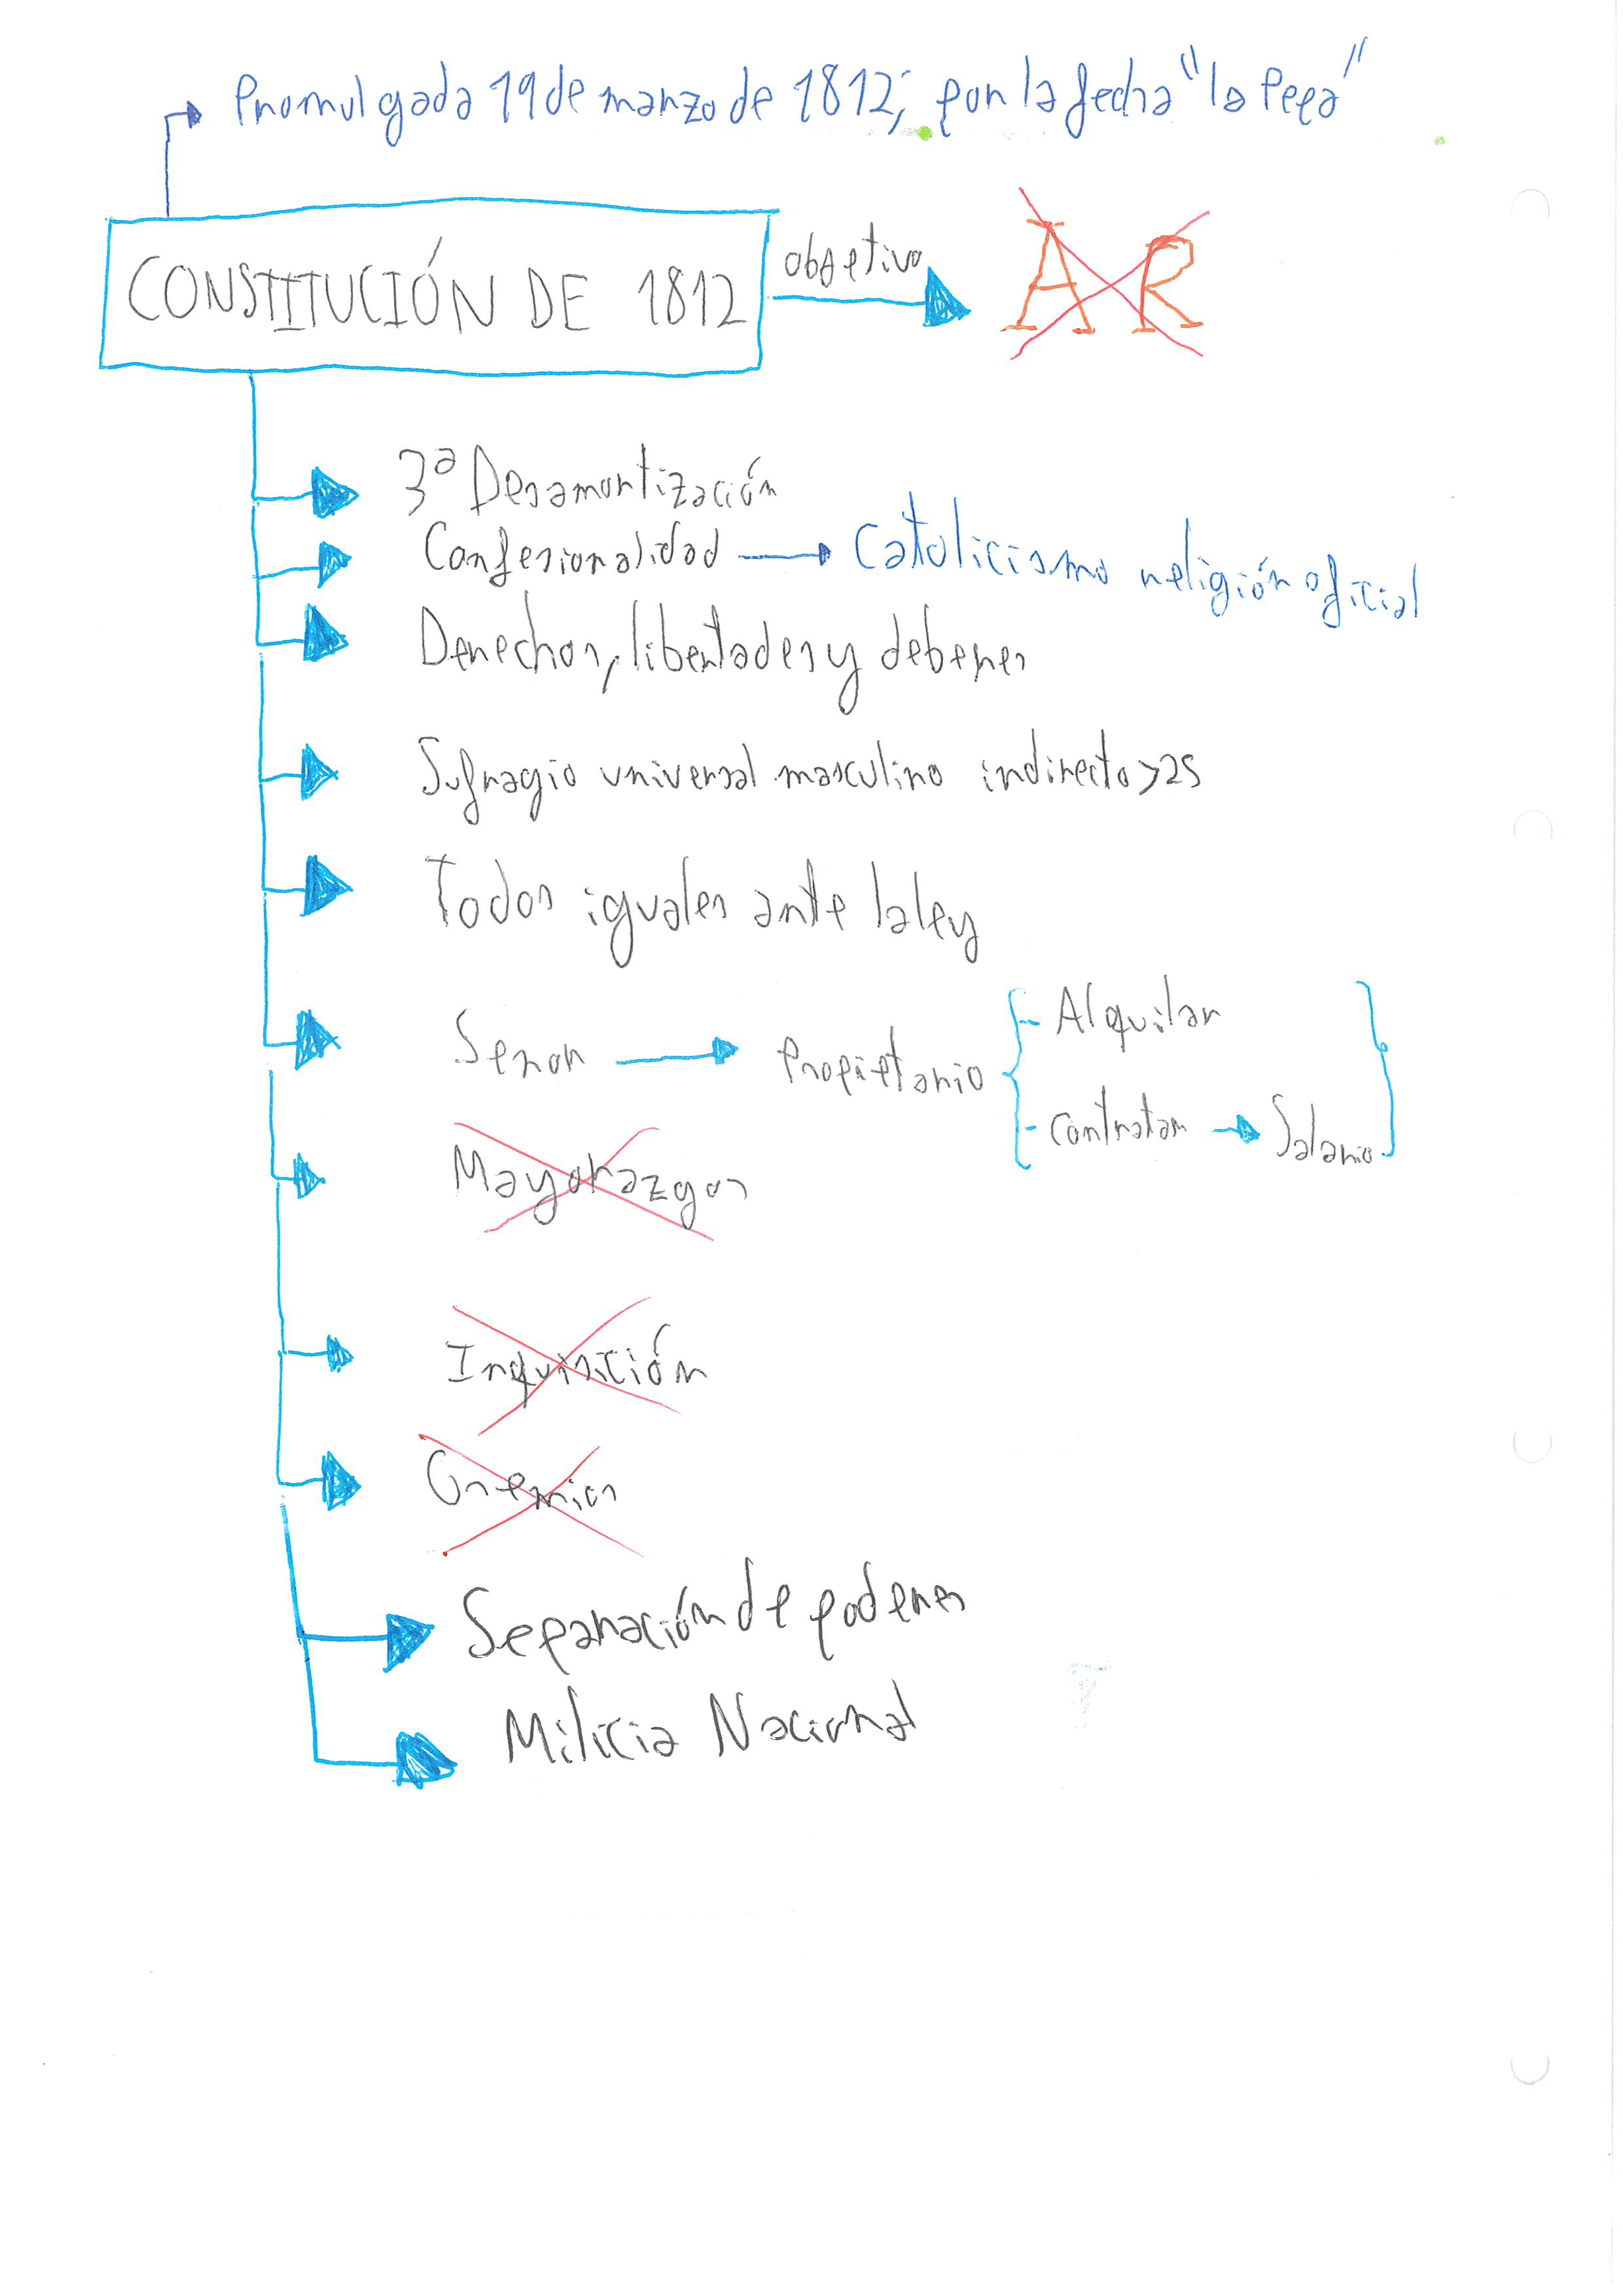 Promulgada 19 de marzo de 1812; por la fecha "la Pepa"
CONSTITUCIÓN DE 1812
objetivo
AR
3ª Desamortización
Confesionalidad
Catolicismo religión oficial
Derechos, libertades y deberes
Sufragio universal masculino indirecto >25
Todos iguales ante la ley
Senor
Propietario
- Alquilar
- Contratar
Salario
Mayorazgos
Inquisición
Gremios
Separación de poderes
Milicia Nacional